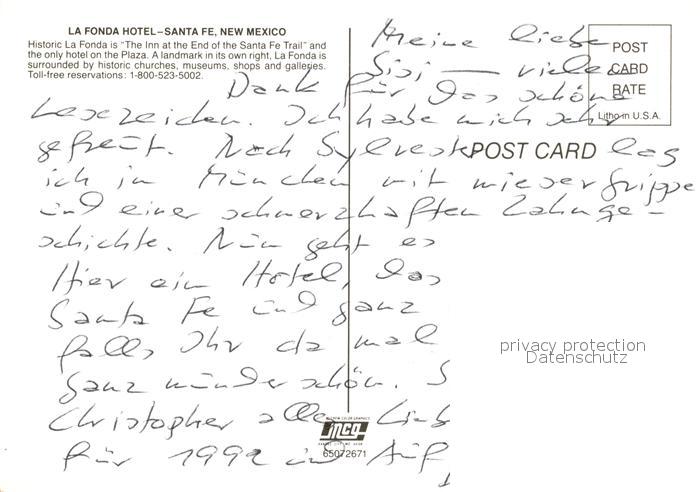 LA FONDA HOTEL–SANTA FE, NEW MEXICO
Historic La Fonda is "The Inn at the End of the Santa Fe Trail" and
the only hotel on the Plaza. A landmark in its own right, La Fonda is
surrounded by historic churches, museums, shops and galleries.
Toll-free reservations: 1-800-523-5002.
POST
CARD
RATE
Litho in U.S.A.
POST CARD
Meine liebe
Sisi — vielen
Dank für das schöne
Lesezeichen. Ich habe mich sehr
gefreut. Nach Sylvester lag
ich in München mit
und einer schmerzhaften Zahnge-
schichte. Nun geht es
Hier ein Hotel, das
Santa Fe und ganz
falls Ihr da mal
ganz wunderschön. S
Christopher alles Lieb
für 1992 und Auf
privacy protection
Datenschutz
mcg
65072671